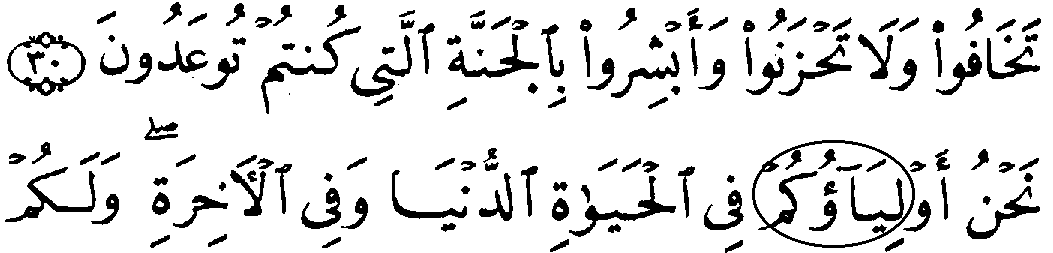 تَخَافُوا۟ وَلَا تَحْزَنُوا۟ وَأَبْشِرُوا۟ بِٱلْجَنَّةِ ٱلَّتِى كُنتُمْ تُوعَدُونَ ٣٠
نَحْنُ أَوْلِيَآؤُكُمْ فِى ٱلْحَيَوٰةِ ٱلدُّنْيَا وَفِى ٱلْءَاخِرَةِ ۖ وَلَكُمْ